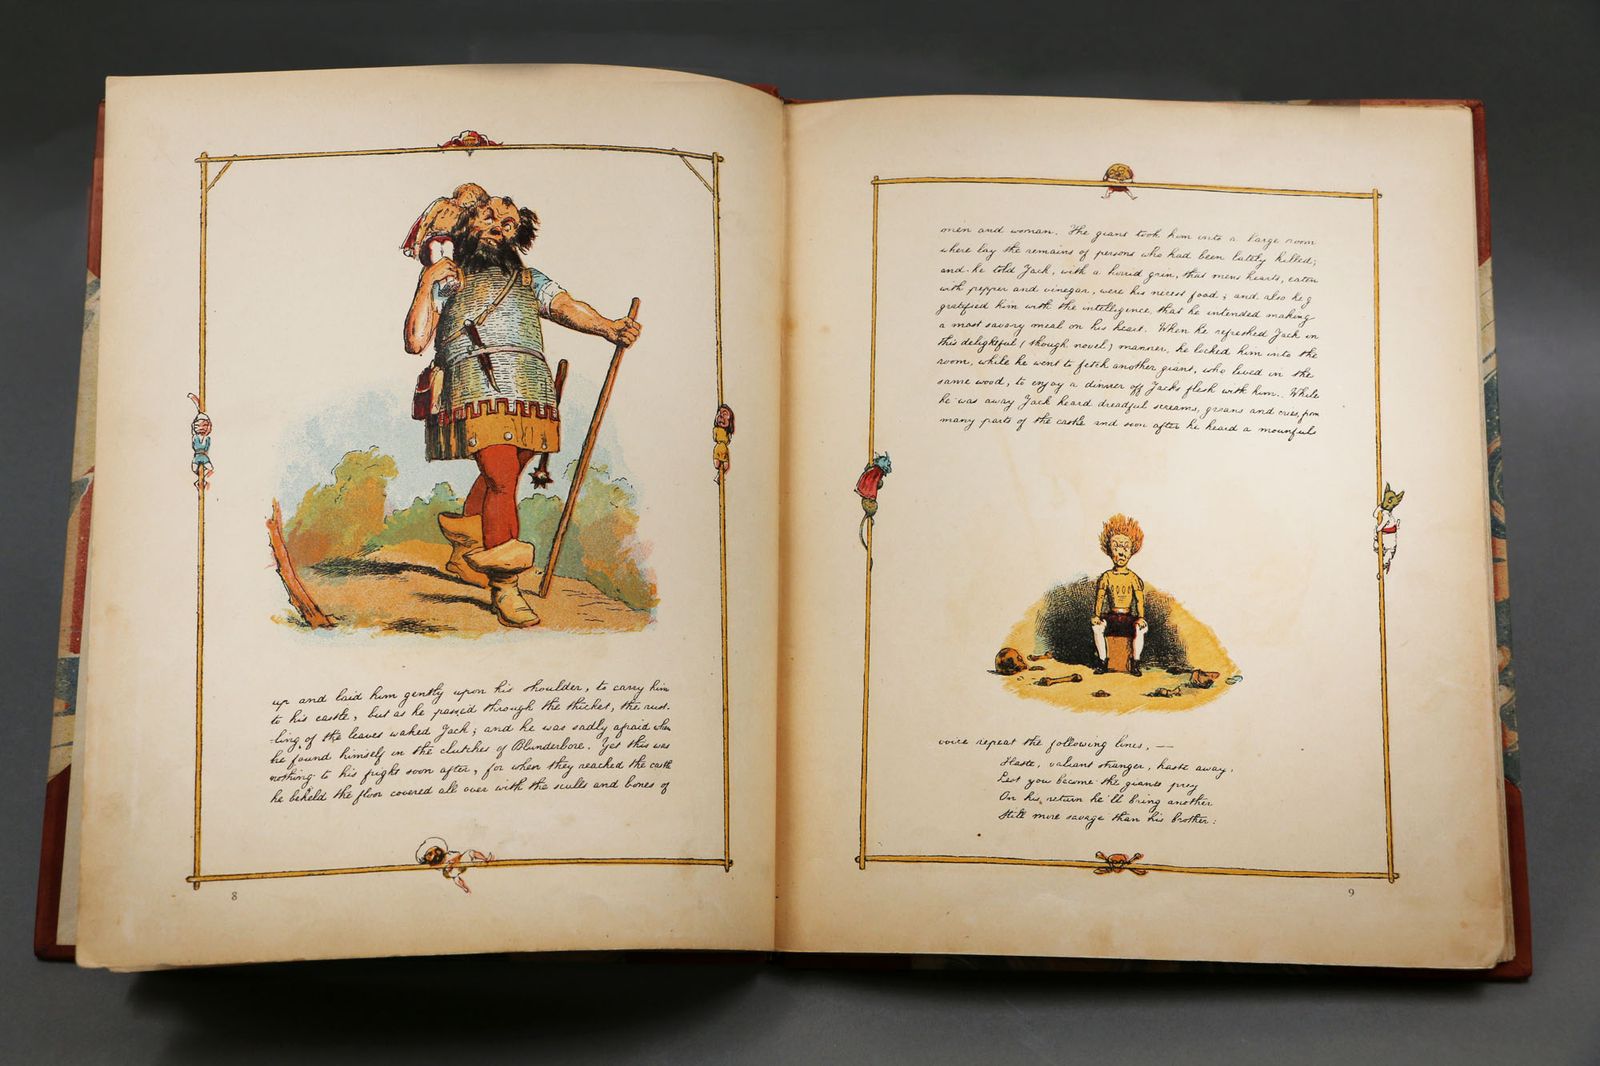 up and laid him gently upon his shoulder, to carry him
to his castle, but as he passed through the thicket, the rust-
-ling of the leaves waked Jack; and he was sadly afraid when
he found himself in the clutches of Blunderbore. Yet this was
nothing to his fright soon after, for when they reached the castle
he beheld the floor covered all over with the sculls and bones of
8
men and woman. The giant took him into a large room
where lay the remains of persons who had been lately killed;
and he told Jack, with a horrid grin, that mens hearts, eaten
with pepper and vinegar, were his nicest food; and also he
gratified him with the intelligence, that he intended making
a most savory meal on his heart. When he refreshed Jack in
this delightful (though novel) manner, he locked him into the
room, while he went to fetch another giant, who lived in the
same wood, to enjoy a dinner off Jacks flesh with him. While
he was away Jack heard dreadful screams, groans and cries, from
many parts of the castle and soon after he heard a mournful
voice repeat the following lines, —
Haste, valiant stranger, haste away,
Lest you become the giants prey
On his return he'll bring another
Still more savage than his brother:
9